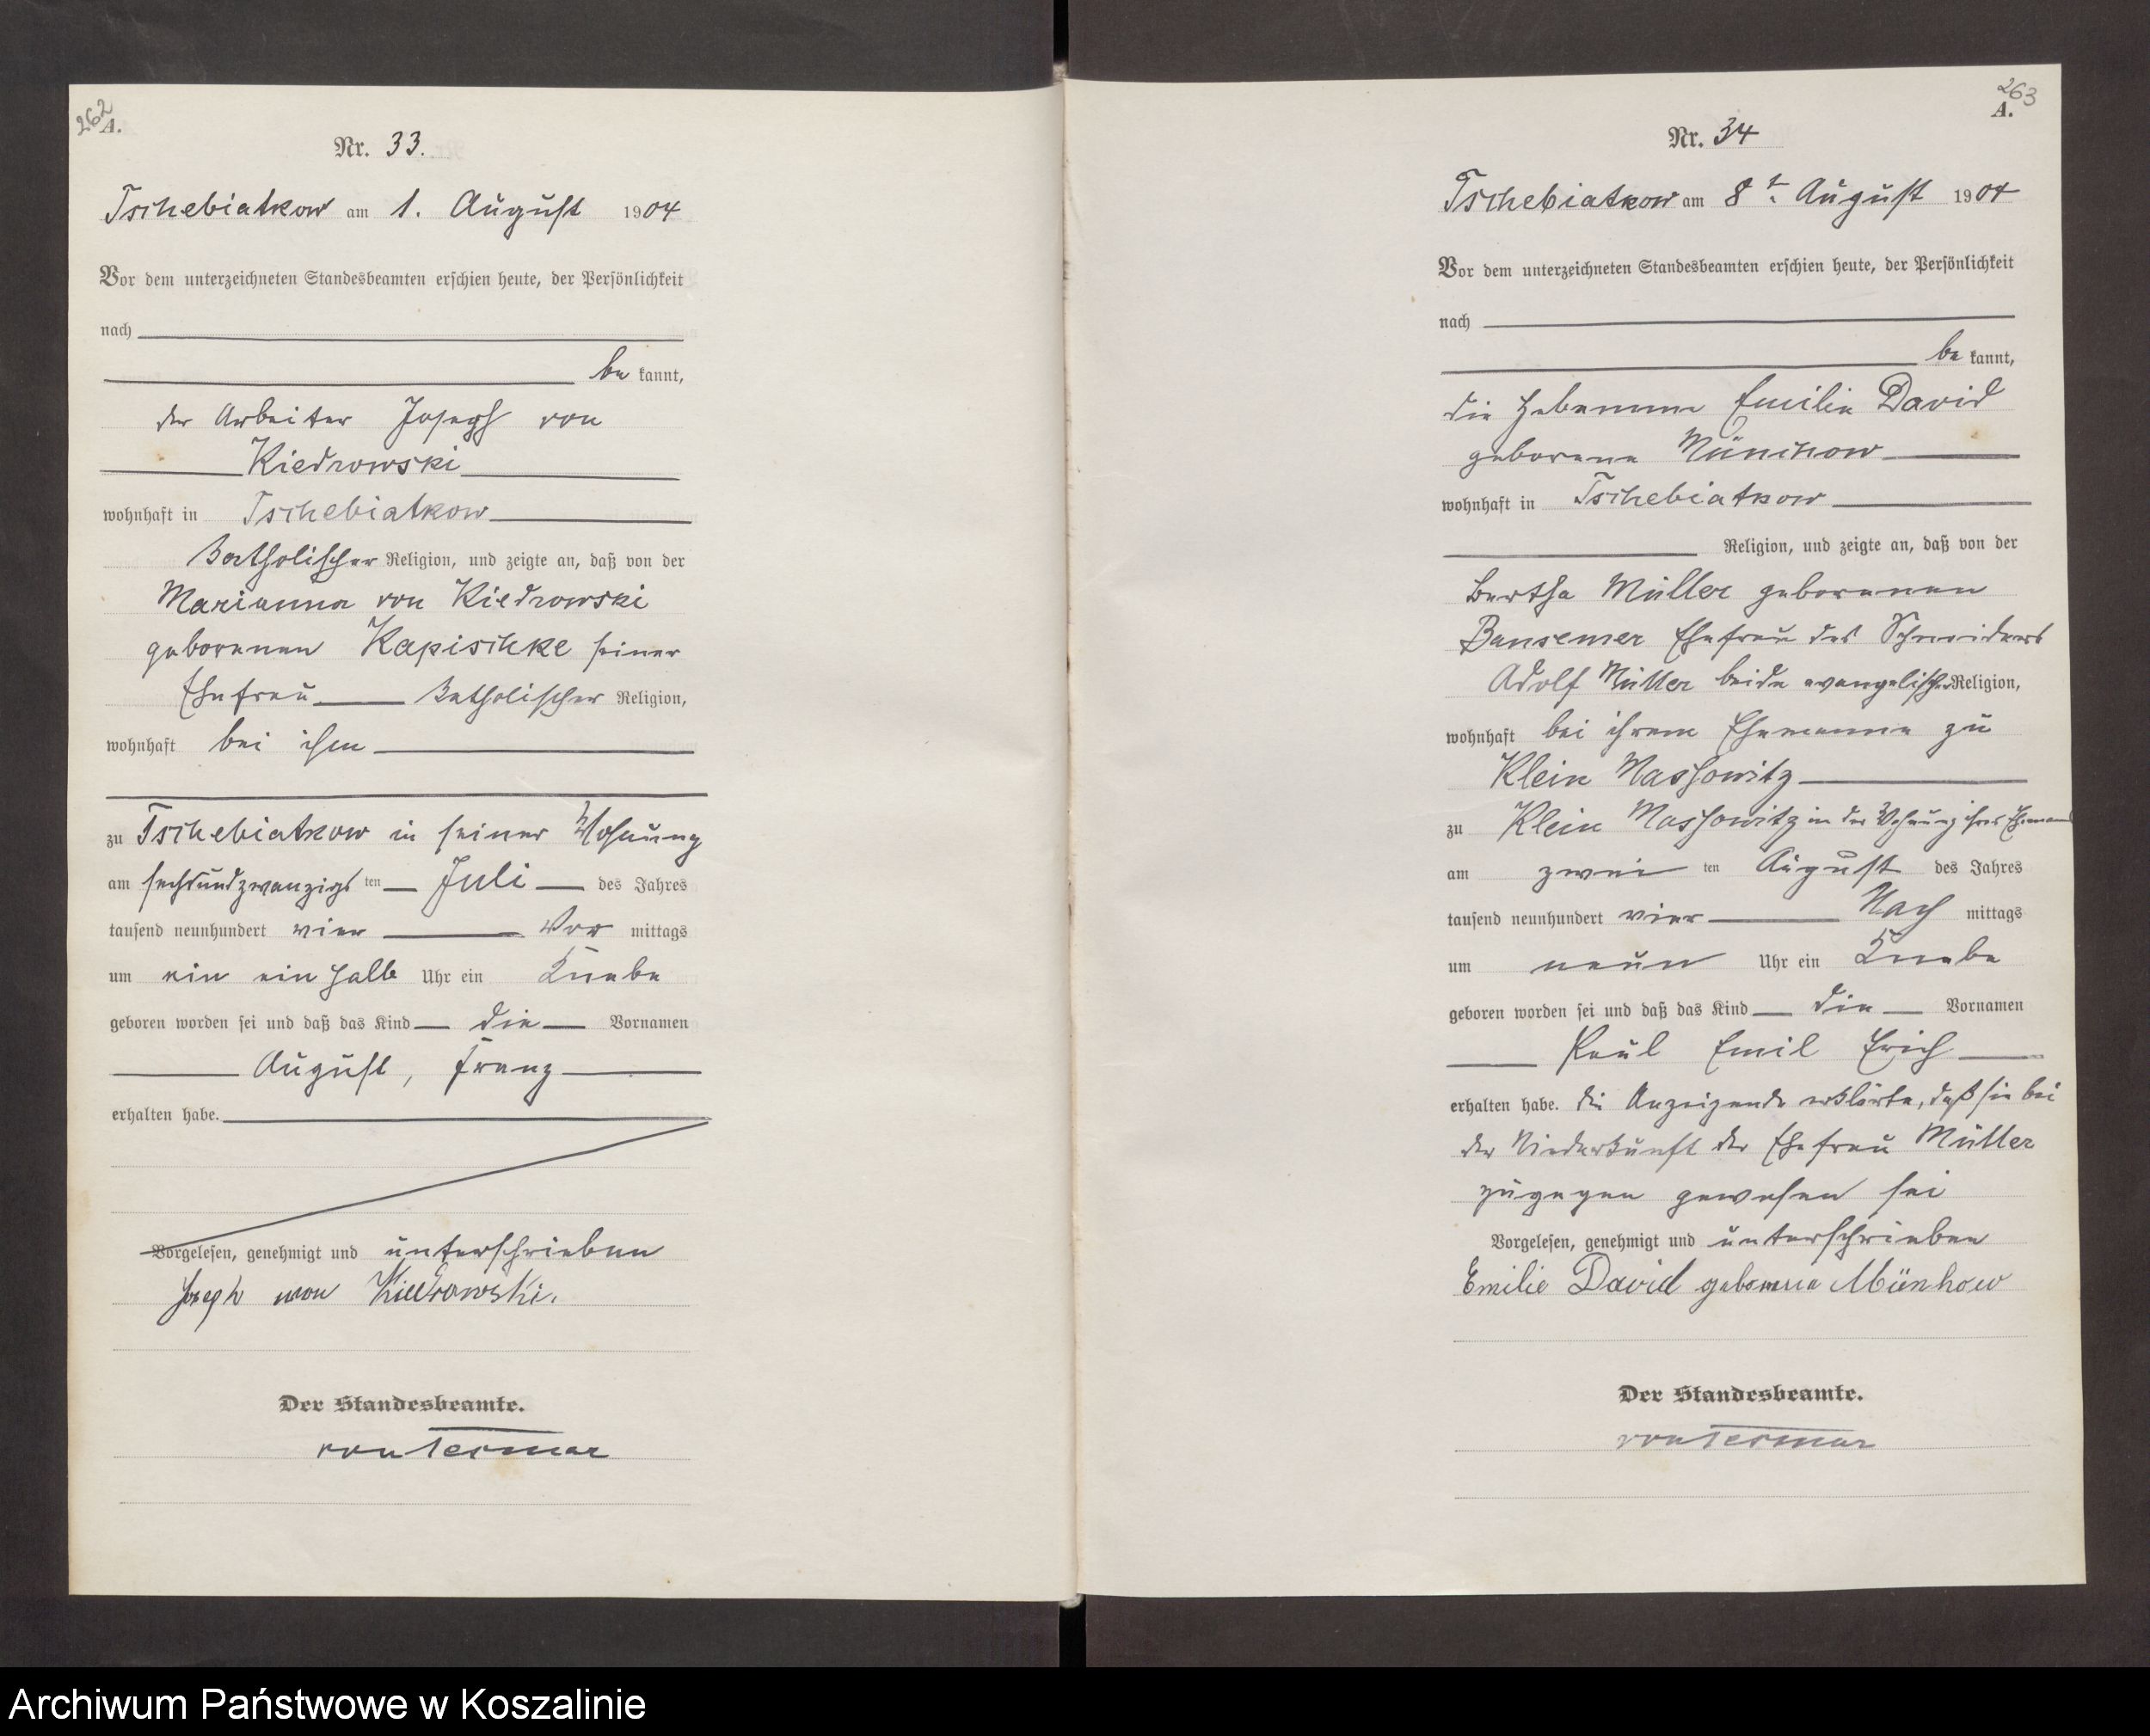 262
A.
Nr. 33.
Tschebiatkow am 1. August 1904
Vor dem unterzeichneten Standesbeamten erschien heute, der Persönlichkeit
nach
be kannt,
der Arbeiter Joseph von
Kiedrowski
wohnhaft in Tschebiatkow
katholischer Religion, und zeigte an, daß von der
Marianna von Kiedrowski
geborenen Kapischke seiner
Ehefrau katholischer Religion,
wohnhaft bei ihm
zu Tschebiatkow in seiner Wohnung
am sechsundzwanzigs ten Juli des Jahres
tausend neunhundert vier Vor mittags
um ein ein halb Uhr ein Knabe
geboren worden sei und daß das Kind die Vornamen
August, Franz
erhalten habe.
Vorgelesen, genehmigt und unterschrieben
Joseph von Kiedrowski.
Der Standesbeamte.
von Tesmar
263
A.
Nr. 34
Tschebiatkow am 8t. August 1904
Vor dem unterzeichneten Standesbeamten erschien heute, der Persönlichkeit
nach
be kannt,
die Hebamme Emilie David
geborene Münchow
wohnhaft in Tschebiatkow
Religion, und zeigte an, daß von der
Bertha Müller geborenen
Bansemer Ehefrau des Schneiders
Adolf Müller beide evangelischer Religion,
wohnhaft bei ihrem Ehemanne zu
Klein Massowitz
zu Klein Massowitz in der Wohnung ihres Ehemanns
am zwei ten August des Jahres
tausend neunhundert vier Nach mittags
um neun Uhr ein Knabe
geboren worden sei und daß das Kind die Vornamen
Paul Emil Erich
erhalten habe. Die Anzeigende erklärte, daß sie bei
der Niederkunft der Ehefrau Müller
zugegen gewesen sei
Vorgelesen, genehmigt und unterschrieben
Emilie David geborene Münhow
Der Standesbeamte.
von Tesmar
Archiwum Państwowe w Koszalinie